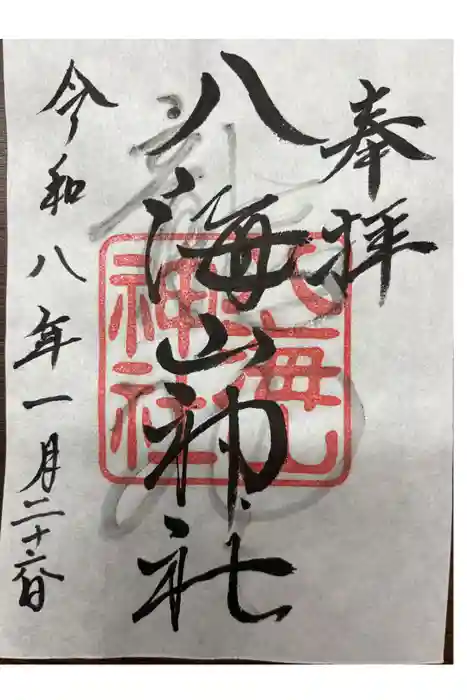 奉拝
八海山神社
八海山神社
令和八年一月二十六日